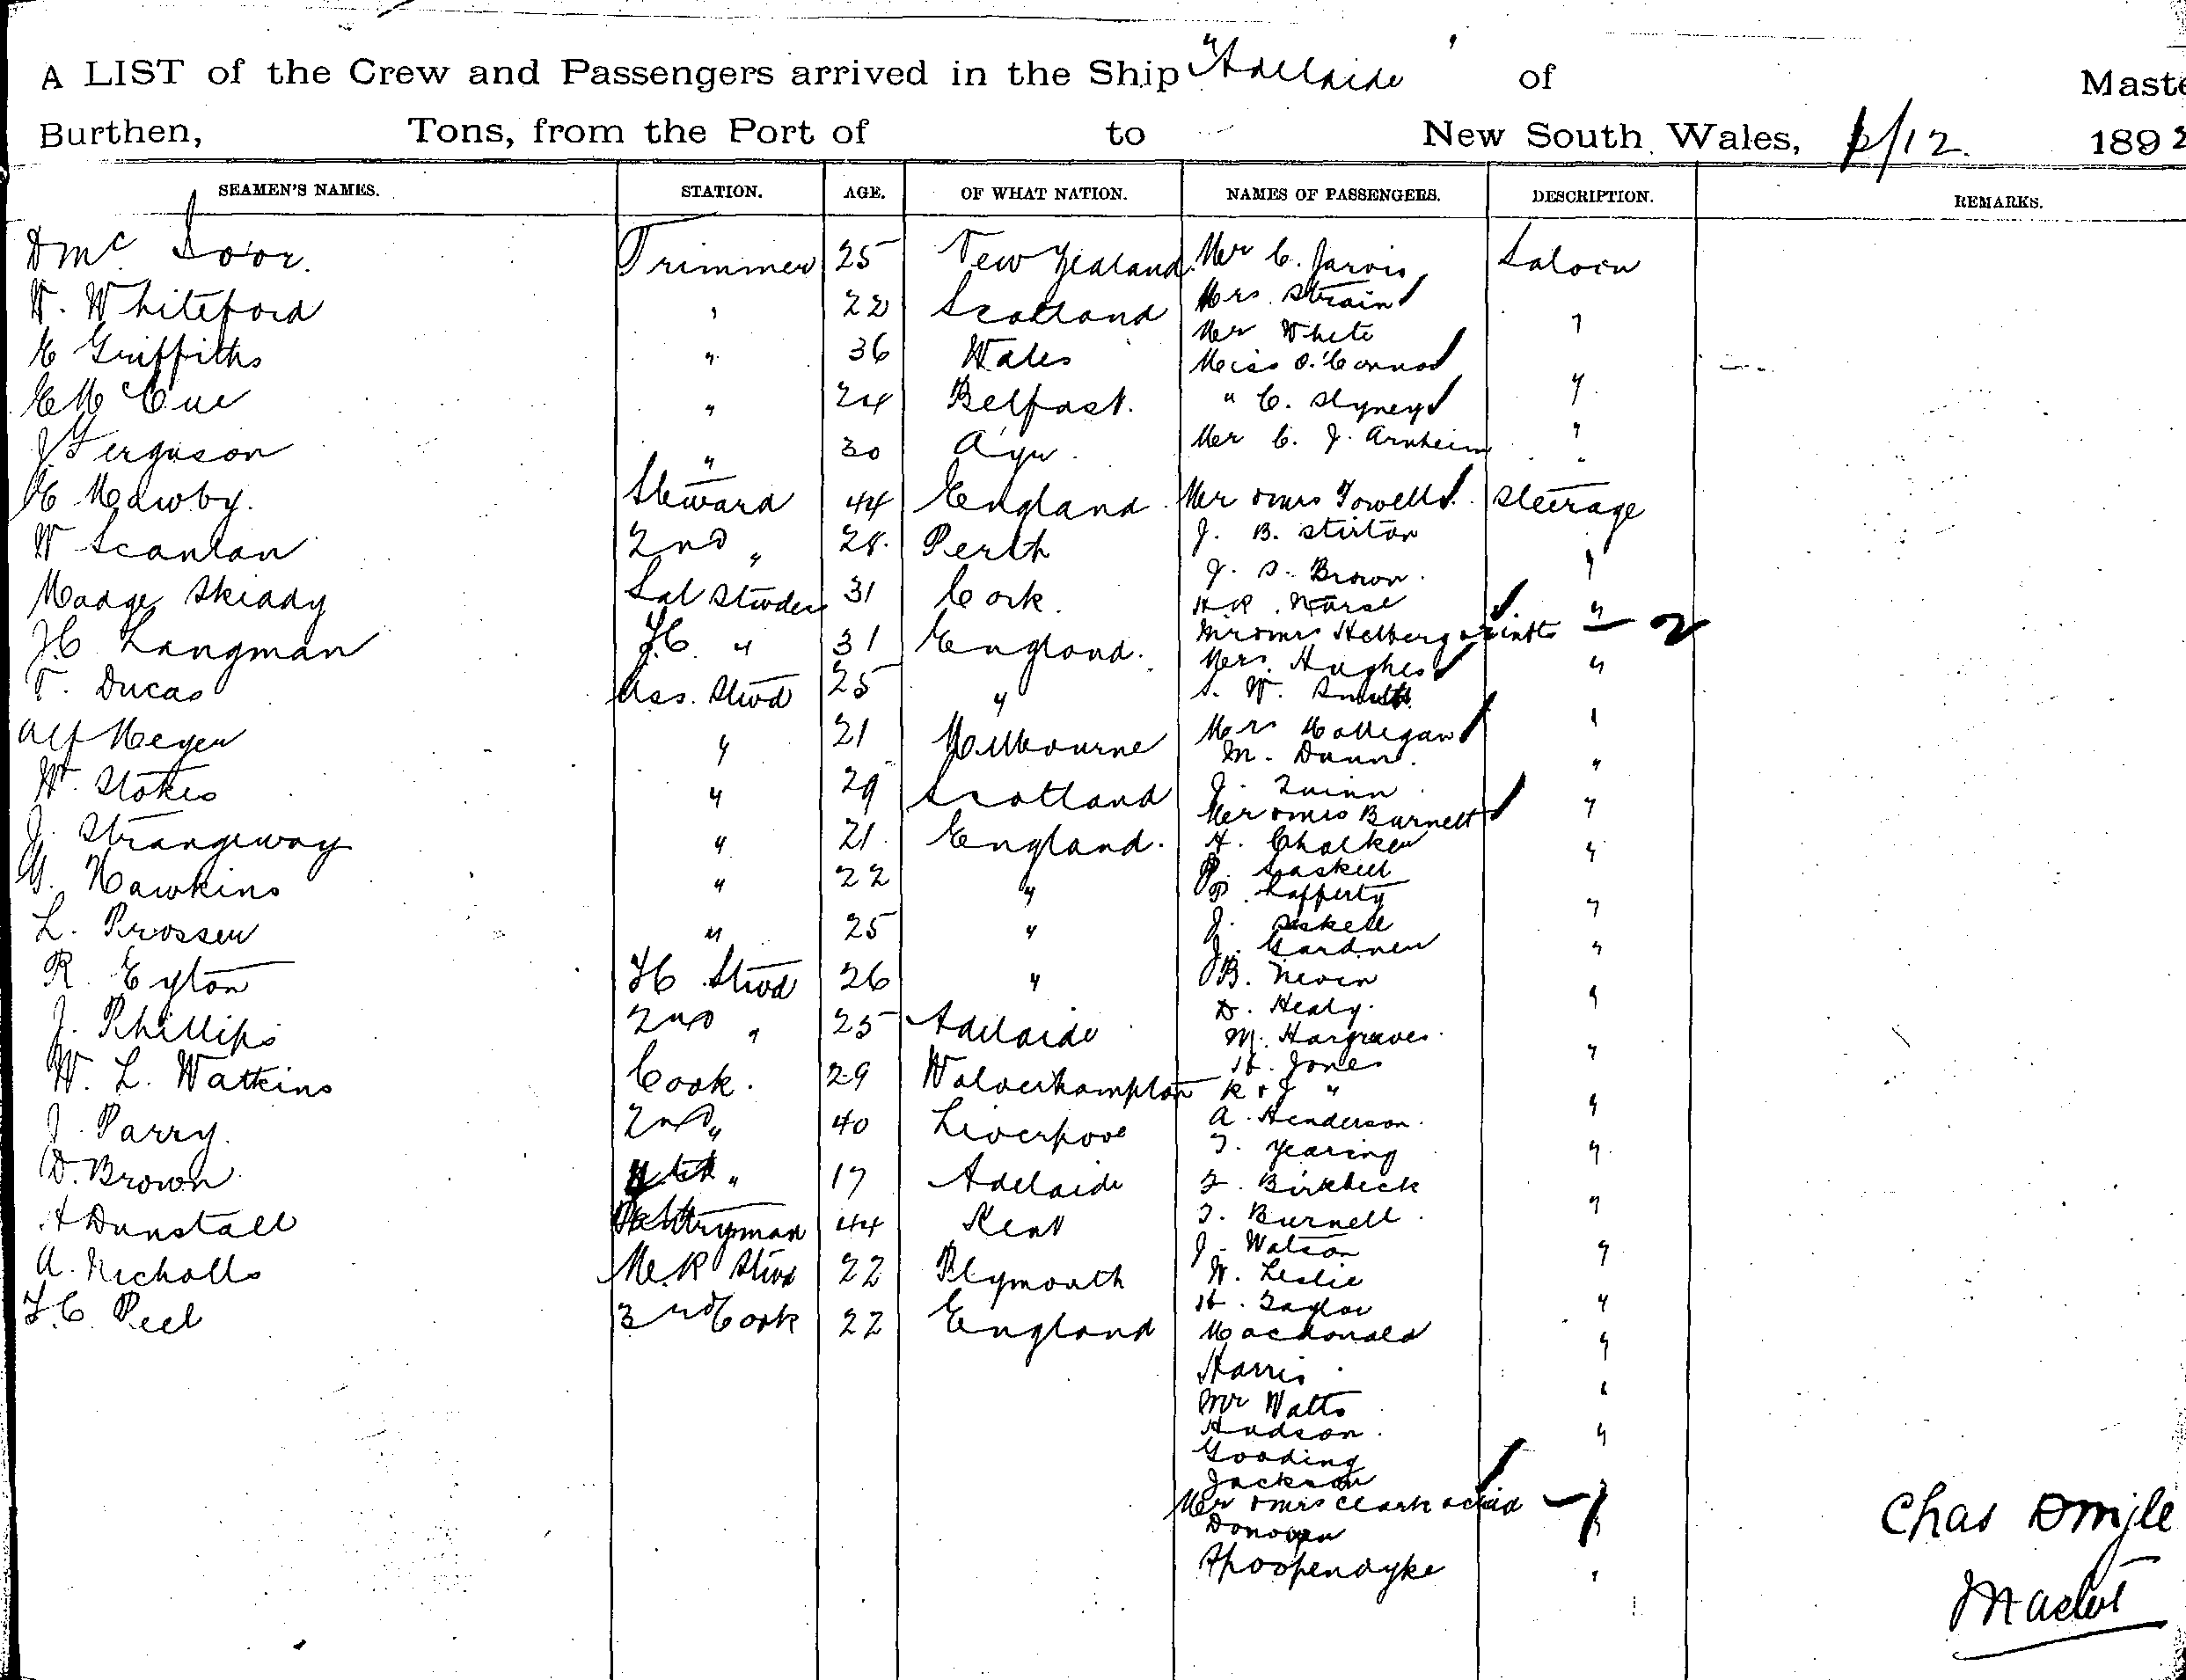 A LIST of the Crew and Passengers arrived in the Ship "Adelaide" of Maste
Burthen, Tons, from the Port of to New South Wales, /12. 189
SEAMEN'S NAMES. STATION. AGE. OF WHAT NATION. NAMES OF PASSENGERS. DESCRIPTION. REMARKS.
D Mc Ivor. Trimmer 25 New Zealand. Mr C. Jarvis Saloon
W. Whiteford " 22 Scotland Mrs. Strain
Mr White "
E Griffiths " 36 Wales Miss O'Connor
E Mc Cue " 24 Belfast. " C. "
J Ferguson " 30 Ayr. Mr C. J. Arnheim "
E Mawby. Steward 44 England Mr & Mrs Towell Steerage
W Scanlan 2nd " 28. Perth J. B. Stirton
J. S. Brown. "
Madge Skiddy Sal Stwdess 31 Cork. H R. Nurse "
J.C Langman F.C. " 31 England. Mr & Mrs Helberg & infts " — 2
Mrs. Hughes "
T. Ducas Ass. Stwd 25 " S. W. Smith
Alf Meyer " 21 Melbourne Mrs Malligan "
M. Dunn. "
W. Stokes " 29 Scotland J. Quinn.
Mr & Mrs Burnett "
J. Strangeway " 21. England. H. Chalker "
G. Hawkins " 22 " P. Gaskell
P. Rafferty "
L. Prosser " 25 " J. Gaskell
J. Gardner "
R. Eyton F.C Stwd 26 " B. Neven
D. Healy. "
J. Phillips 2nd " 25 Adelaide M. Hargraves.
H. Jones "
W. L. Watkins Cook. 29 Wolverhampton R & J "
J. Parry. 2nd " 40 Liverpool A. Henderson. "
T. Yearing "
D. Brown. " 17 Adelaide F. Birkbeck
A Dunstall Pantryman 44 Kent T. Burnell. "
J. Watson "
A. Nicholls M.R Stwd 22 Plymouth W. Leslie
F.C. Peel 3rd Cook 22 England H. Taylor "
Macdonald "
Harris.
Mr Watts "
Hudson. "
Gooding
Jackson
Mr & Mrs Clark & child — 1
Donovan "
Spoopendyke "
Chas
Master